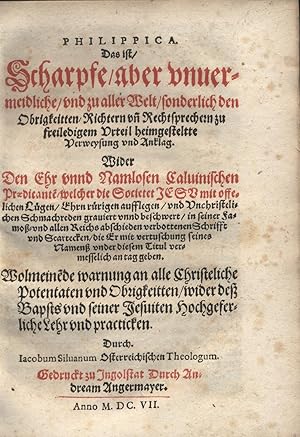 PHILIPPICA.
Das ist/
Scharpfe/aber vnuer-
meidliche/vnd zu aller Welt/sonderlich den
Obrigkeitten/Richtern vñ Rechtsprechern zu
freiledigem Vrteil heimgestellte
Verweysung vnd Anklag.
Wider
Den Ehr vnnd Namlosen Caluinischen
Prædicantē/welcher die Societet IESV mit offe-
lichen Lügen/Ehrn rürigen aufflegen/vnd Vnchristeli-
chen Schmachreden grauiert vnnd beschwert/in seiner Fa-
moß/vnd allen Reichs abschieden verbottenen Schrifft
vnd Scartecken/die Er mit vertuschung seines
Namenß vnder diesem Titul ver-
messelich an tag geben.
Wolmeinēde warnung an alle Christeliche
Potentaten vnd Obrigkeitten/wider deß
Bapsts vnd seiner Jesuiten Hochgefer-
liche Lehr vnd practicken.
Durch.
Iacobum Siluanum Osterreichischen Theologum.
Gedruckt zu Ingolstat Durch An-
dream Angermayer.
Anno M. DC. VII.